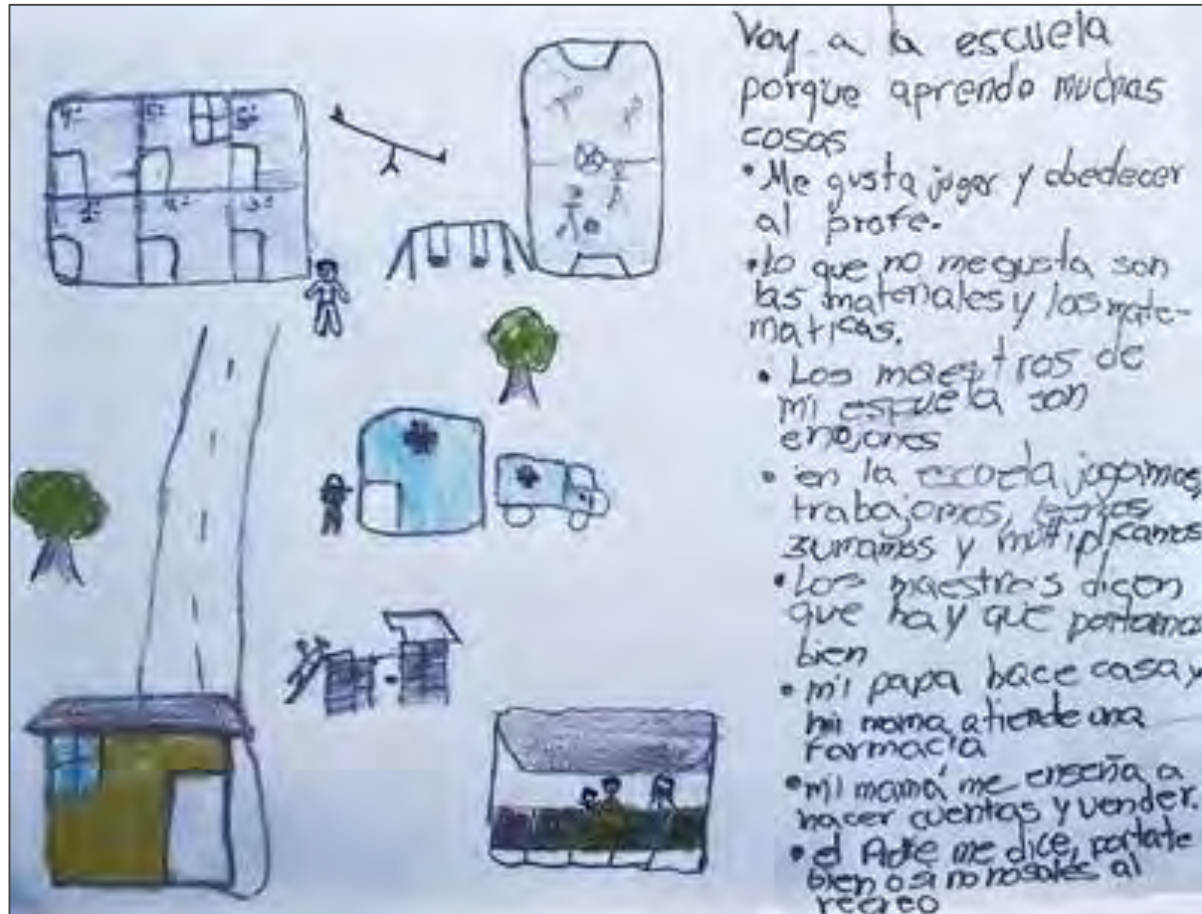 Voy a la escuela
porque aprendo muchas
cosas
• Me gusta jugar y obedecer
al profe.
• lo que no me gusta son
las materiales y las mate-
maticas.
• Los maestros de
mi escuela son
enojones
• en la escuela jugamos,
trabajamos,
sumamos y multiplicamos
• Los maestros dicen
que hay que portarnos
bien
• mi papa hace casa y
mi mama atiende una
Farmacia
• mi mamá me enseña a
hacer cuentas y vender.
• el me dice, portate
bien o si no no sales al
recreo